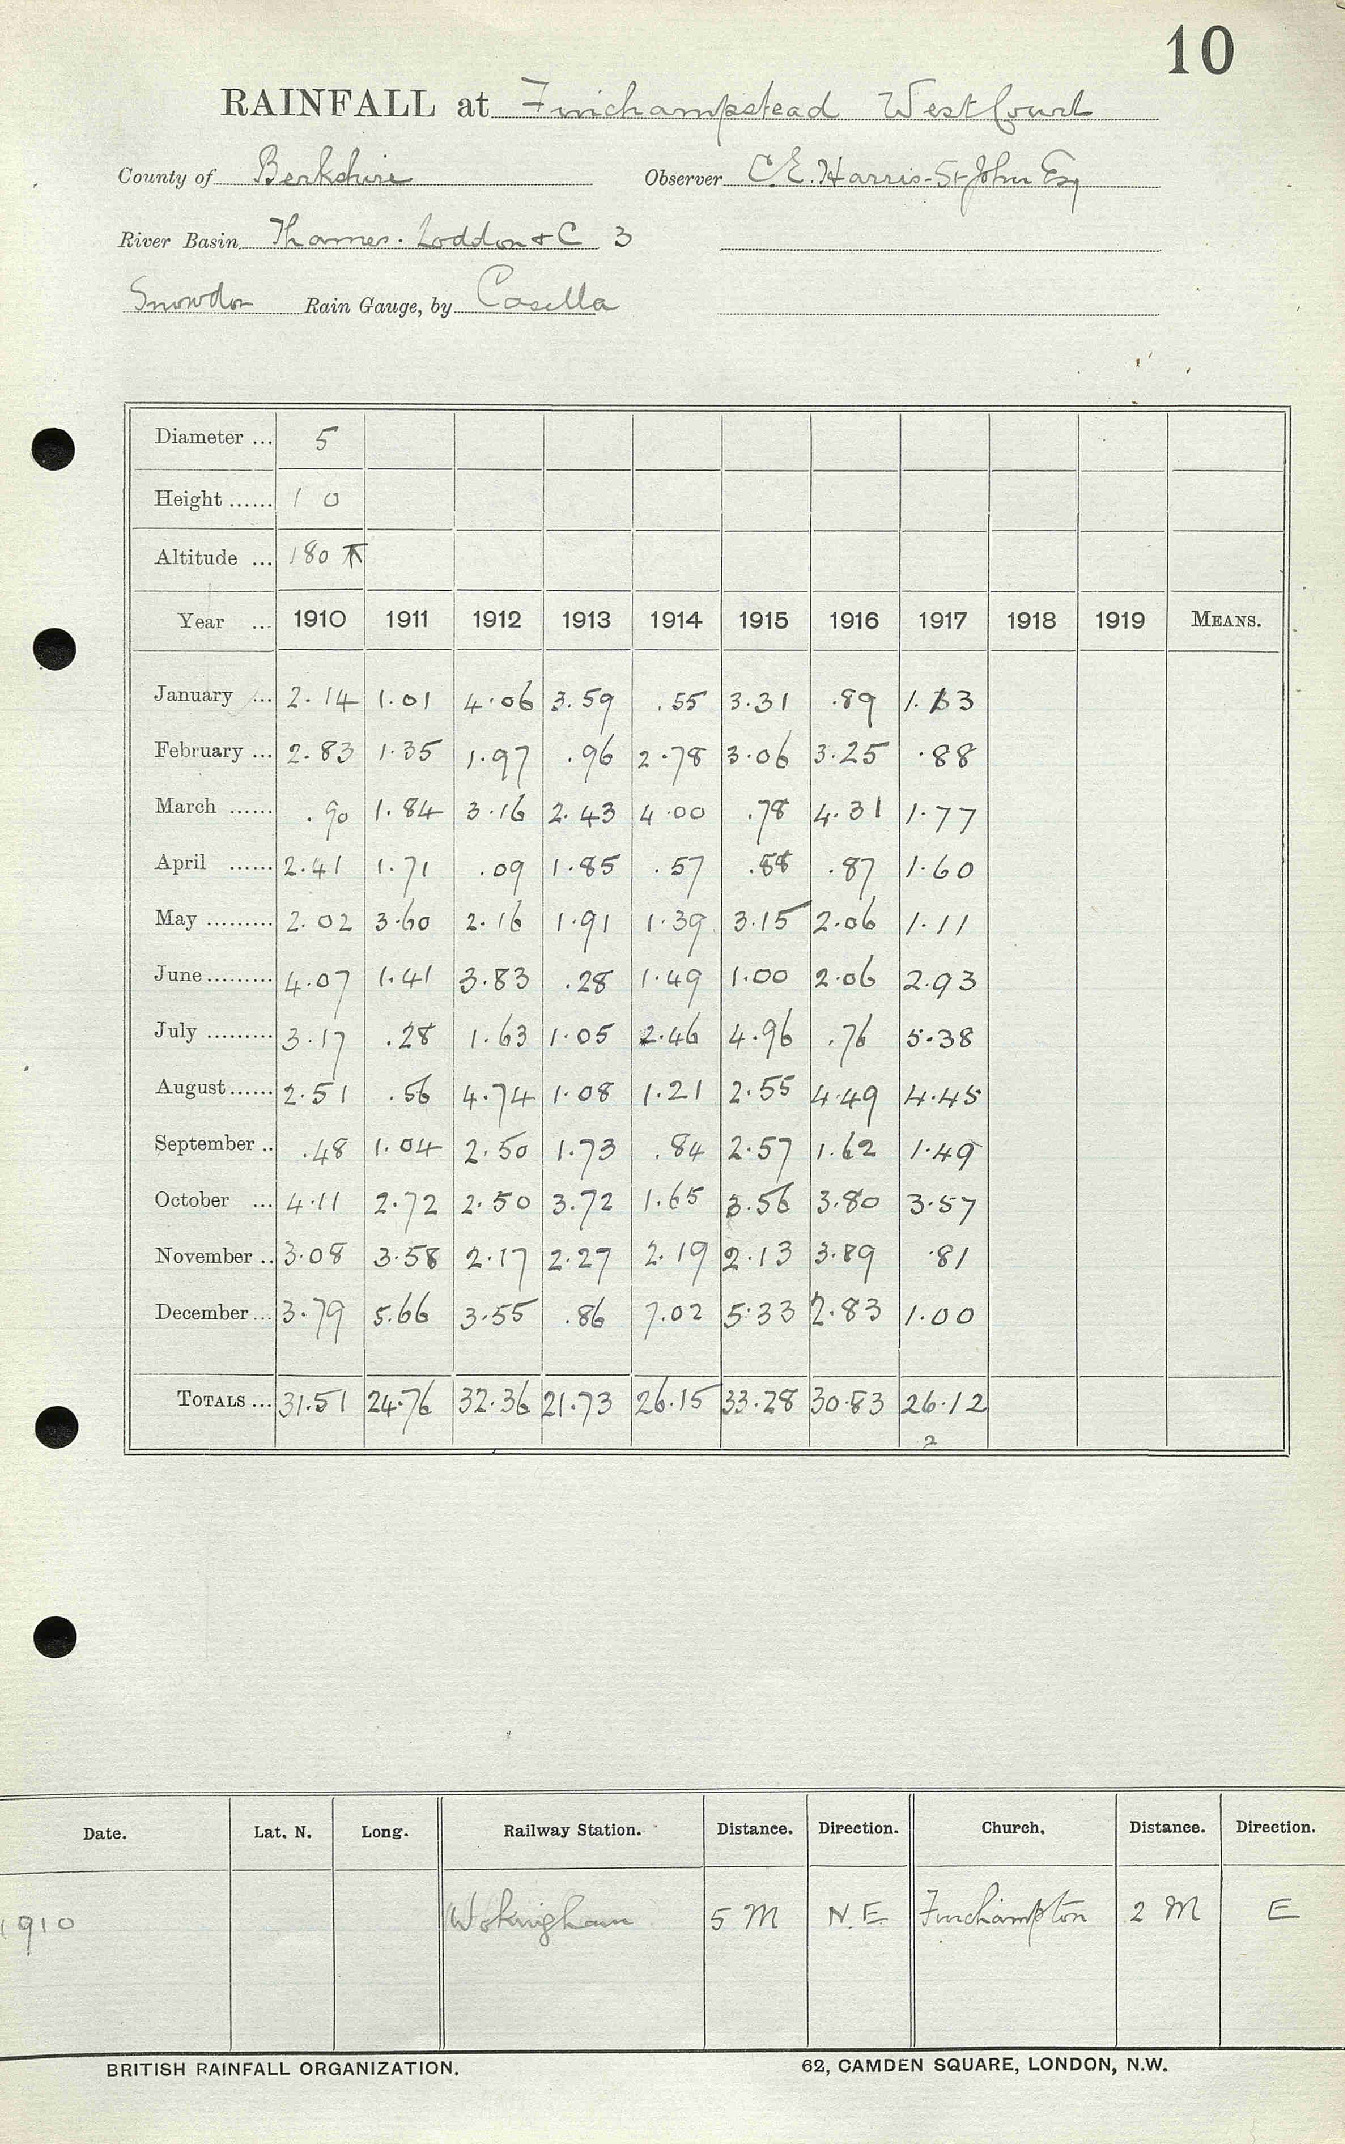 10
RAINFALL at Finchampstead West Court
County of Berkshire Observer C.E. Harris-St John Esq
River Basin Thames. Loddon & C 3
Snowdon Rain Gauge, by Casella
Diameter ... 5
Height ...... 1 0
Altitude ... 180
Year ... 1910 1911 1912 1913 1914 1915 1916 1917 1918 1919 MEANS.
January ... 2.14 1.01 4.06 3.59 .55 3.31 .89 1.13
February ... 2.83 1.35 1.97 .96 2.78 3.06 3.25 .88
March ...... .90 1.84 3.16 2.43 4.00 .78 4.31 1.77
April ...... 2.41 1.71 .09 1.85 .57 .88 .87 1.60
May ......... 2.02 3.60 2.16 1.91 1.39 3.15 2.06 1.11
June ......... 4.07 1.41 3.83 .28 1.49 1.00 2.06 2.93
July ......... 3.17 .28 1.63 1.05 2.46 4.96 .76 5.38
August ...... 2.51 .56 4.74 1.08 1.21 2.55 4.49 4.45
September .. .48 1.04 2.50 1.73 .84 2.57 1.62 1.49
October ... 4.11 2.72 2.50 3.72 1.65 3.56 3.80 3.57
November .. 3.08 3.58 2.17 2.27 2.19 2.13 3.89 .81
December ... 3.79 5.66 3.55 .86 7.02 5.33 2.83 1.00
TOTALS ... 31.51 24.76 32.36 21.73 26.15 33.28 30.83 26.12
2
Date. Lat. N. Long. Railway Station. Distance. Direction. Church. Distance. Direction.
1910 Wokingham 5 M N.E. Finchampton 2 M E
BRITISH RAINFALL ORGANIZATION. 62, CAMDEN SQUARE, LONDON, N.W.